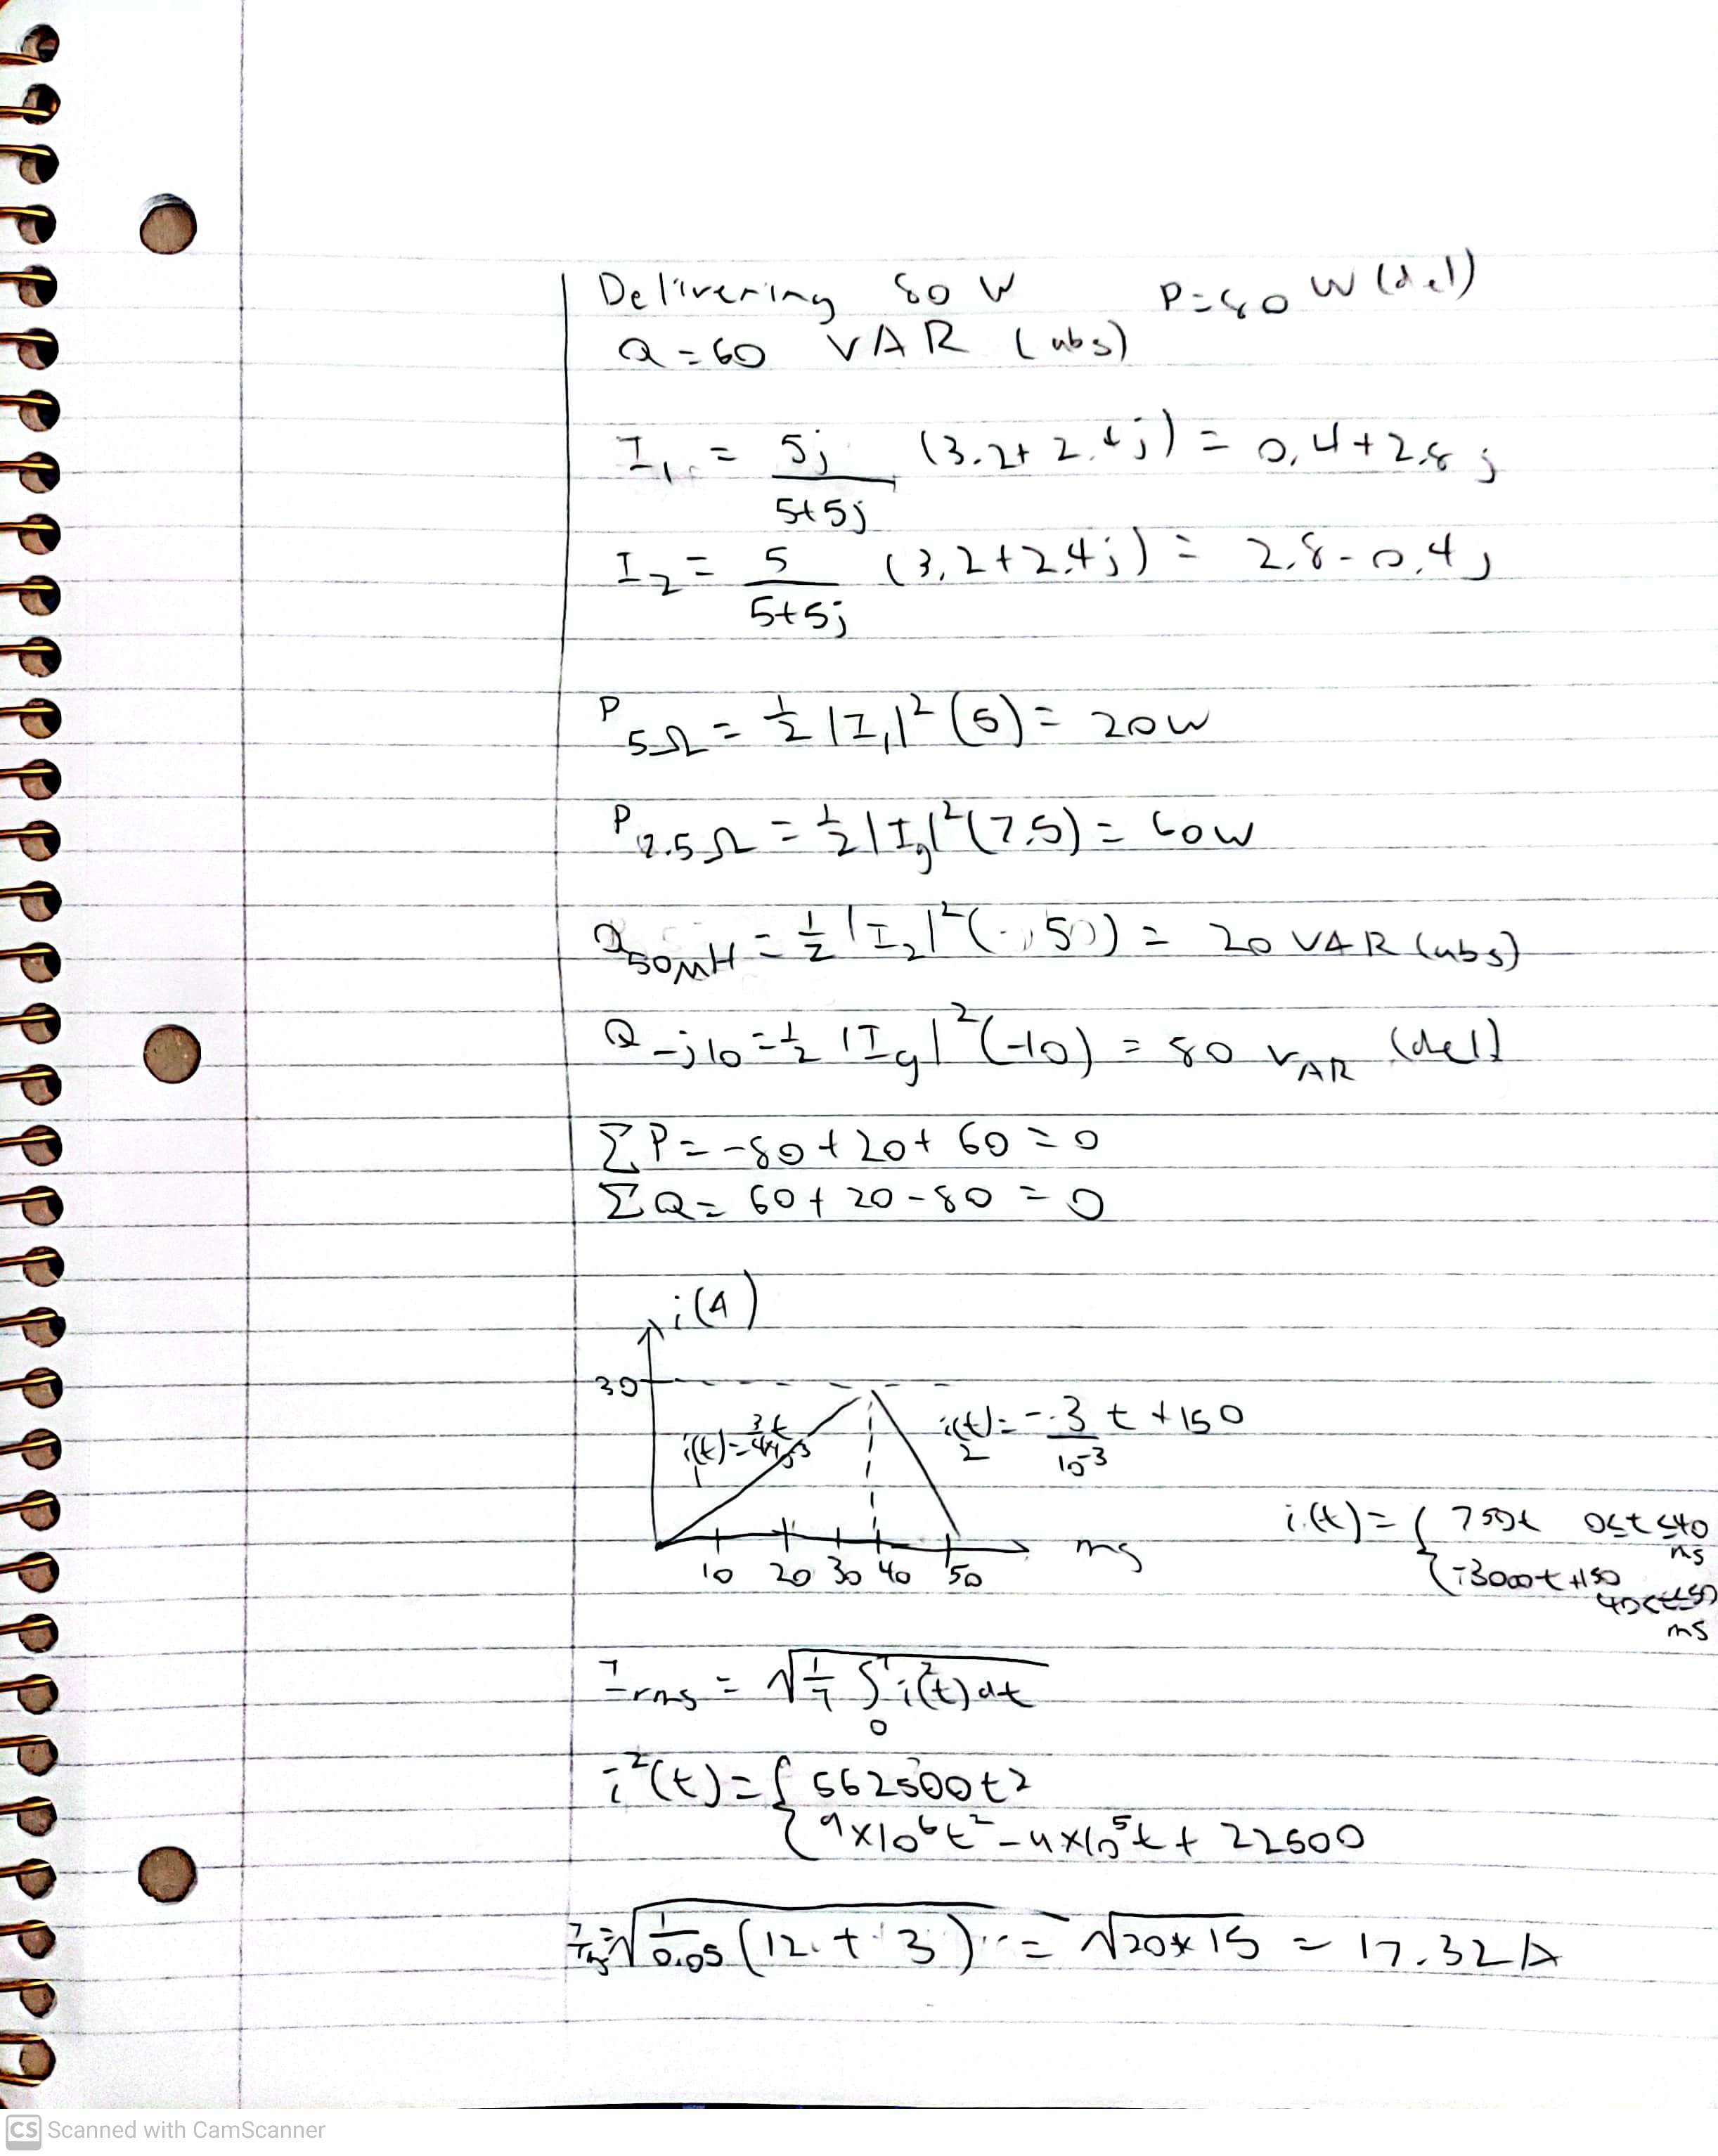 Delivering 80 W P=80 W (del)
Q=60 VAR (abs)
I₁ = 5j/(5+5j) (3.2+2.4j) = 0,4+2,8j
I₂ = 5/(5+5j) (3,2+2,4j) = 2,8-0,4j
P 5Ω = ½|I₁|²(5) = 20W
P 7.5Ω = ½|Ig|²(7,5) = 60W
Q 50μH = ½|I₂|²(5) = 20 VAR (abs)
Q -j10 = ½|Ig|²(-10) = 80 VAR (del)
ΣP = -80+20+60 = 0
ΣQ = 60+20-80 = 0
i(A)
30
i₁(t) = 3t/4×10⁻³ i₂(t) = -3/10⁻³ t +150
10 20 30 40 50 ms
i(t) = { 750t 0≤t≤40 ms
{ -3000t+150 40≤t≤50 ms
Irms = √(1/T ∫₀ᵀ i²(t)dt)
i²(t) = { 562500t²
{ 9×10⁶t² - 9×10⁵t + 22500
Irms = √(1/0.05 (12+3)) = √(20×15) = 17.32A
CS Scanned with CamScanner